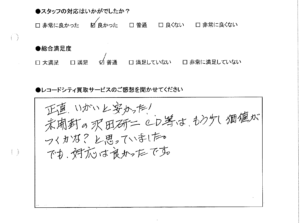 ●スタッフの対応はいかがでしたか?
□ 非常に良かった ☑ 良かった □ 普通 □ 良くない □ 非常に良くない
●総合満足度
□ 大満足 □ 満足 ☑ 普通 □ 満足していない □ 非常に満足していない
●レコードシティ買取サービスのご感想を聞かせてください
正直、いがいと安かった!
未開封の沢田研二CD等は、もう少し価値が
つくかな?と思っていました。
でも、対応は良かったです。